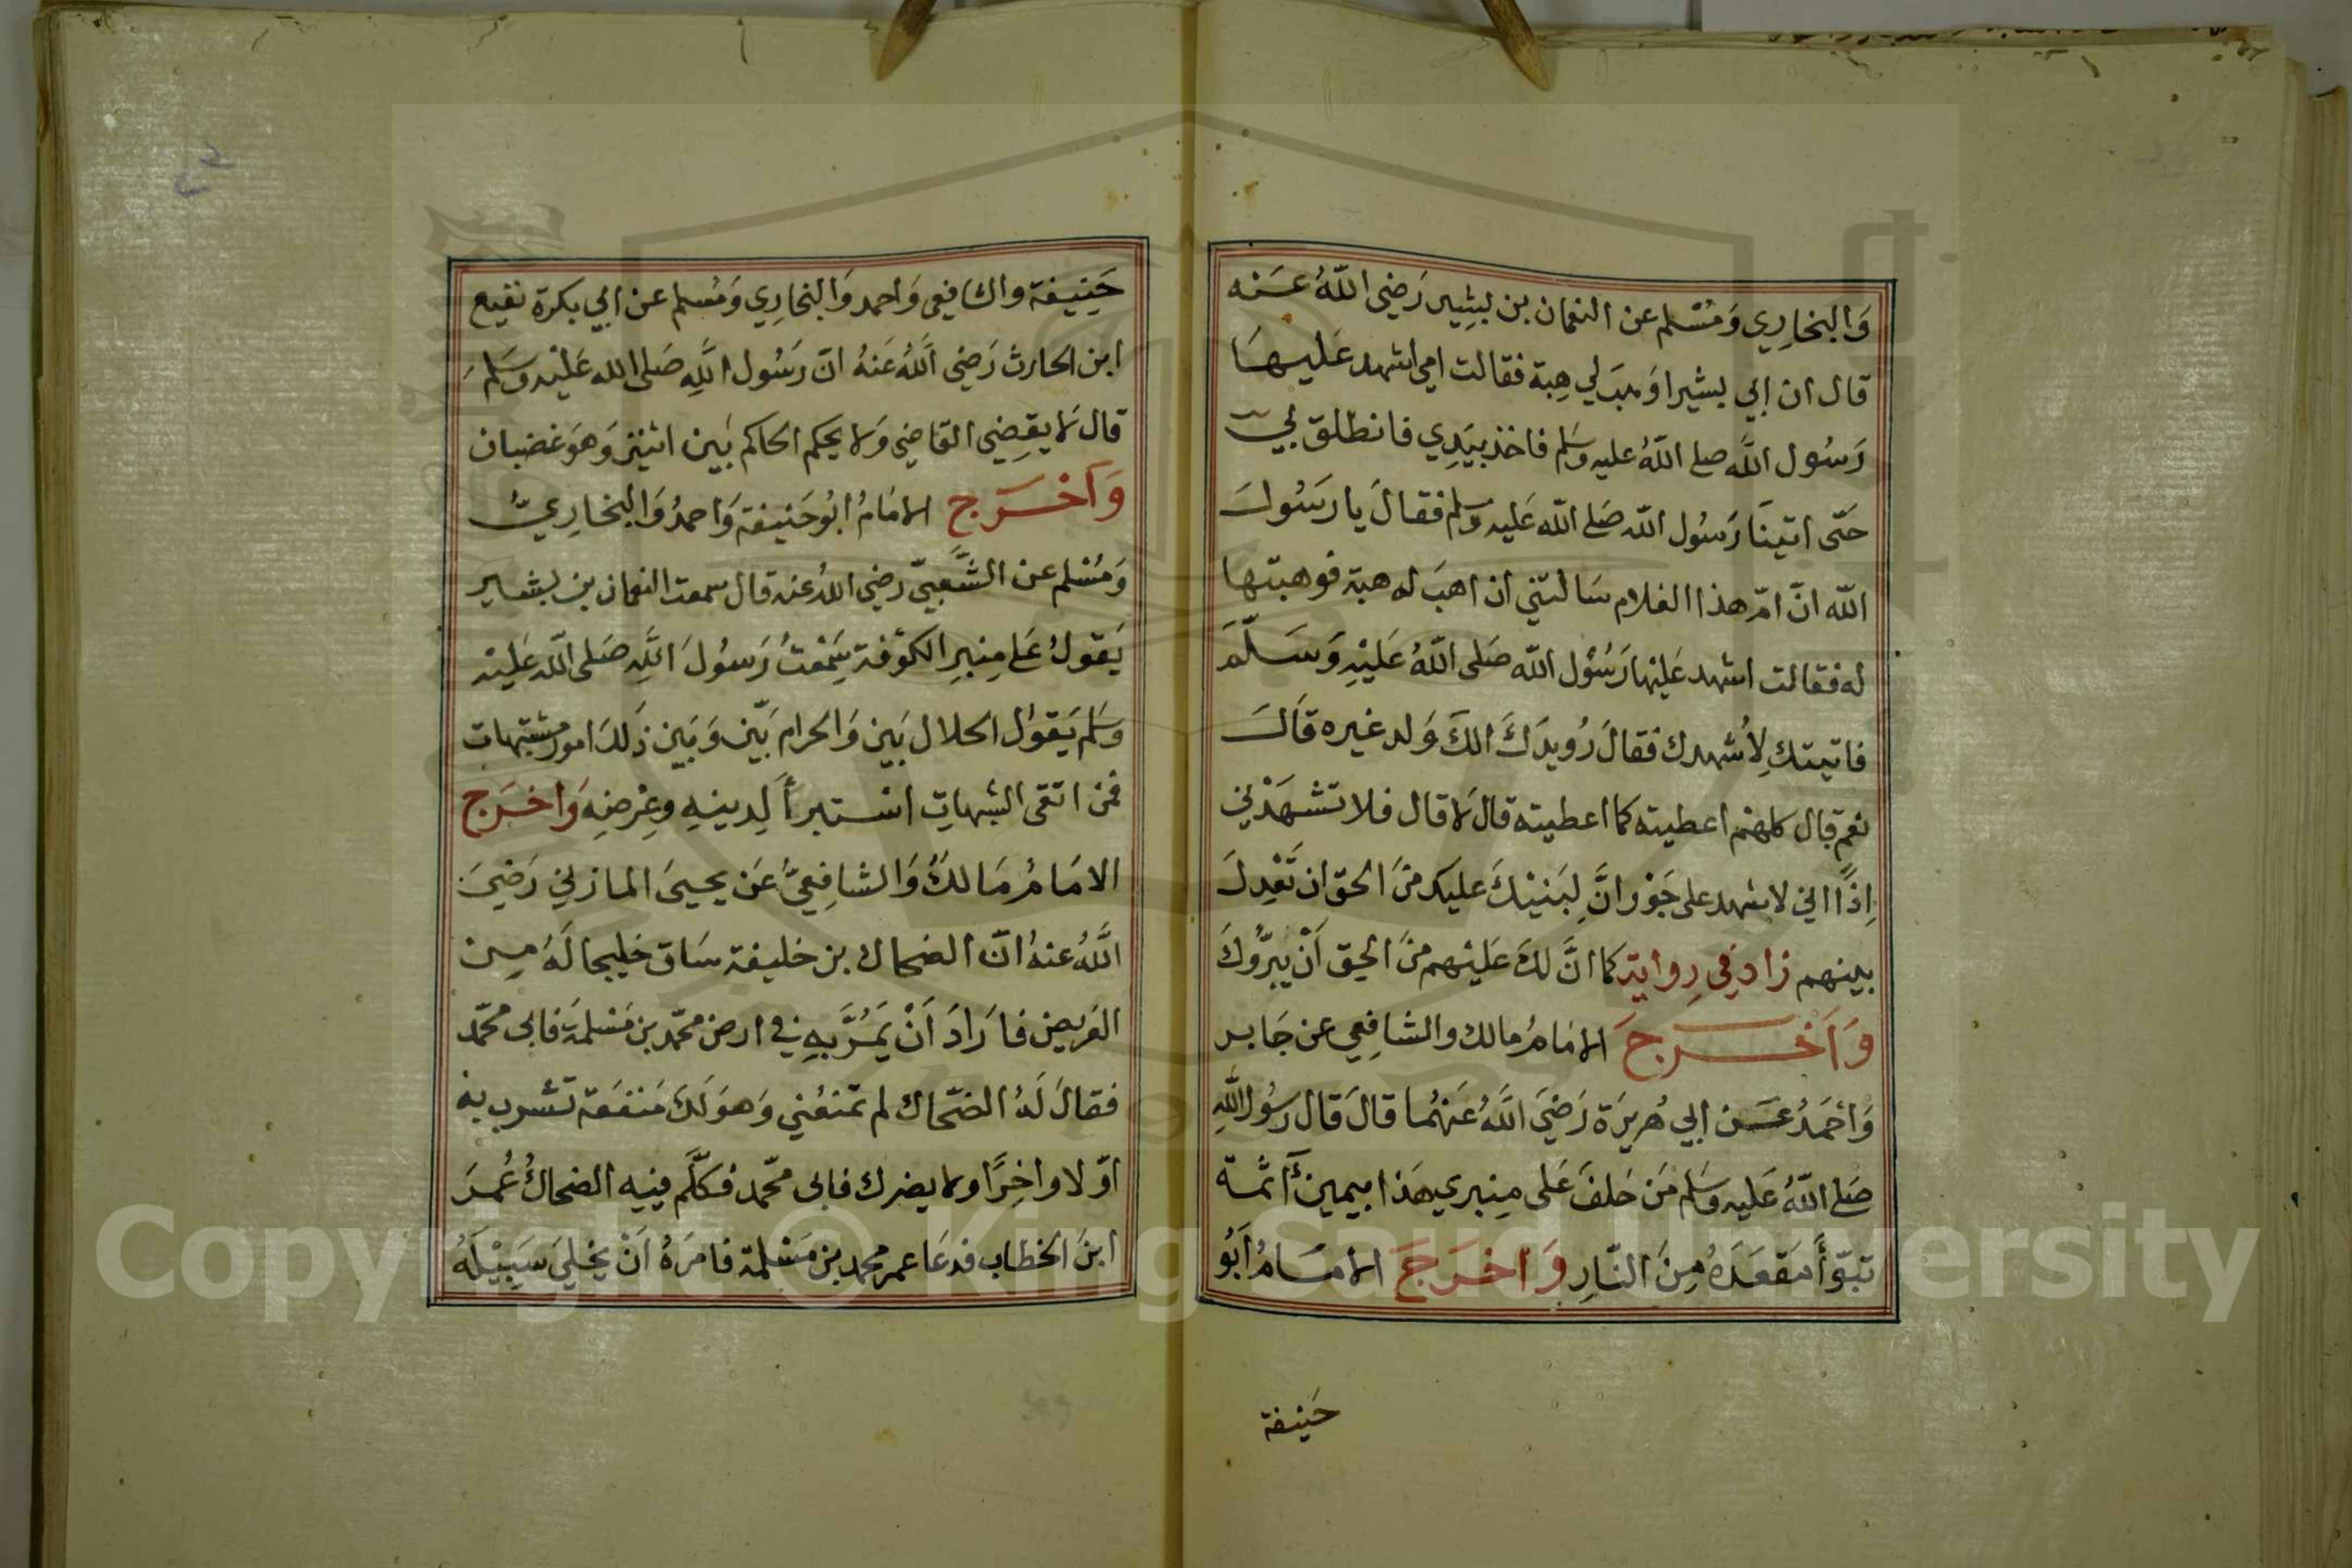 وَالبخارِي وَمُسْلم عن النعمان بن بشِير رَضي اللّهُ عَنْه
قال ان ابي بشيرا وَهَبَ لي هِبة فقالت امي اشهد عَليهَا
رَسُول اللَّه صلے اللّهُ عليه وسَلم فاخذ بيَدِي فانطلق بي
حَتّى اتينَا رَسُول اللّه صَلے اللّه عَليه وسلم فقالَ يا رَسُولَ
اللّه انَّ امّ هذا الغلام سَالتني ان اهبَ له هبة فوهبتها
له فقالت اشهد عَليْها رَسُوْل اللّه صَلى اللّهُ عَليْهِ وَسَلَّمَ
فاتيتك لِأشهدك فقالَ رُويدَكَ الكَ وَلد غيره قَالَ
نعم قال كلهم اعطيته كما اعطيته قال لَا قال فلا تشهَدْني
اِذًا اني لا اشهد على جَوْر وانَّ لِبَنيْكَ عليك منَ الحق ان تَعْدِلَ
بينهم زاد في رِواية كما انَّ لكَ عَليْهم منَ الحق اَنْ يبرُّوكَ
وَاَخْرَجَ الامَامُ مالك والشافِعي عن جَابر
وَاَحْمَدُ عَن ابي هُريرَة رَضيَ اللَّهُ عَنهُما قالَ قال رسُول اللّهِ
صَلے اللّهُ عليه وسَلم مَن حَلفَ عَلى مِنبري هَذا بيمين آثمة
تبّوأ مَقعَدَهُ مِنَ النّارِ وَاخرَجَ الامَامُ اَبُو
حَنيفة
حَنِيفة والشافِعي وَاحمد وَالبخارِي وَمُسلم عن ابي بكرة نفيع
ابن الحارث رَضِي اللَّهُ عَنهُ انّ رَسُول اللَّهِ صَلى الله عَليْه وسَلمَ
قال لَا يقضِي القاضِي وَلَا يحكم الحاكم بَين اثنين وَهوَ غضبان
وَاَخْرَج الامَامُ ابُو حَنيفة وَاحمدُ وَالبخارِيُّ
وَمُسْلم عن الشَّعبيّ رضي اللهُ عنه قال سمعت النعمان بن بشير
يَقولُ عَلى مِنبرِ الكوْفة سَمْعتُ رَسُولَ اللَّهِ صَلى اللّه عَليْه
وسَلم يَقول الحلال بَين وَالحرام بَيّن وَبَين ذَلكَ امور مشتبهات
فمن اتقى الشبهاتِ استبرأ لِدينِهِ وعِرْضِهِ وَاخرَج
الامَامُ مَالكُ وَالشافِعيُّ عَن يحيىَ المازني رَضيَ
اللَّهُ عنهُ انّ الضحاك بن خليفة سَاق خليجا لَهُ مِن
العَريض فارَادَ اَنْ يَمُرَّ بهِ في ارض محمّد بن مَسْلمَة فابى محمّد
فقالَ لَهُ الضحّاك لم تمنعْني وَهوَ لَكَ مَنفعَة تشرب به
اوّلا واخِرًا ولا يضرك فابى محمّد فكلَّم فيه الضحاكُ عُمرَ
ابنَ الخطاب فدعَا عمر محمد بن مَسْلمة فامَرَهُ اَنْ يخليَ سَبيْلَهُ
Copyright © King Saud University